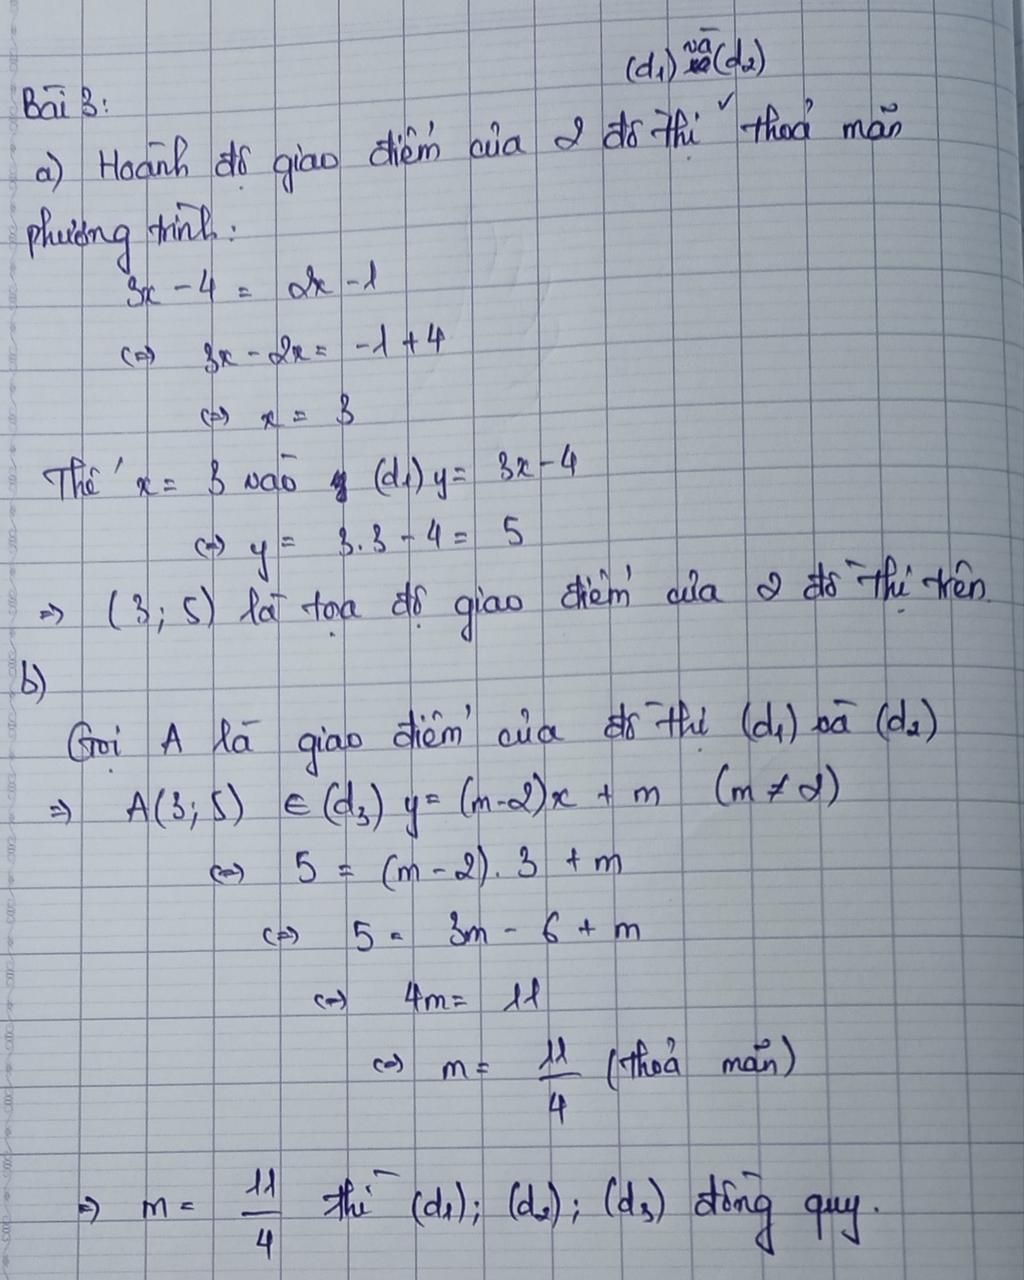 (d₁) và (d₂)
Bài 3:
a) Hoành độ giao điểm của 2 đồ thị ✓ thoả mãn
phương trình:
3x - 4 = 2x - 1
<=> 3x - 2x = -1 + 4
<=> x = 3
Thế x = 3 vào (d₁) y = 3x - 4
<=> y = 3.3 - 4 = 5
=> (3; 5) là tọa độ giao điểm của 2 đồ thị trên
b)
Gọi A là giao điểm của đồ thị (d₁) và (d₂)
=> A(3; 5) ∈ (d₃) y = (m-2)x + m (m ≠ 2)
<=> 5 = (m - 2). 3 + m
<=> 5 = 3m - 6 + m
<=> 4m = 11
<=> m = 11/4 (thoả mãn)
=> m = 11/4 thì (d₁); (d₂); (d₃) đồng quy.